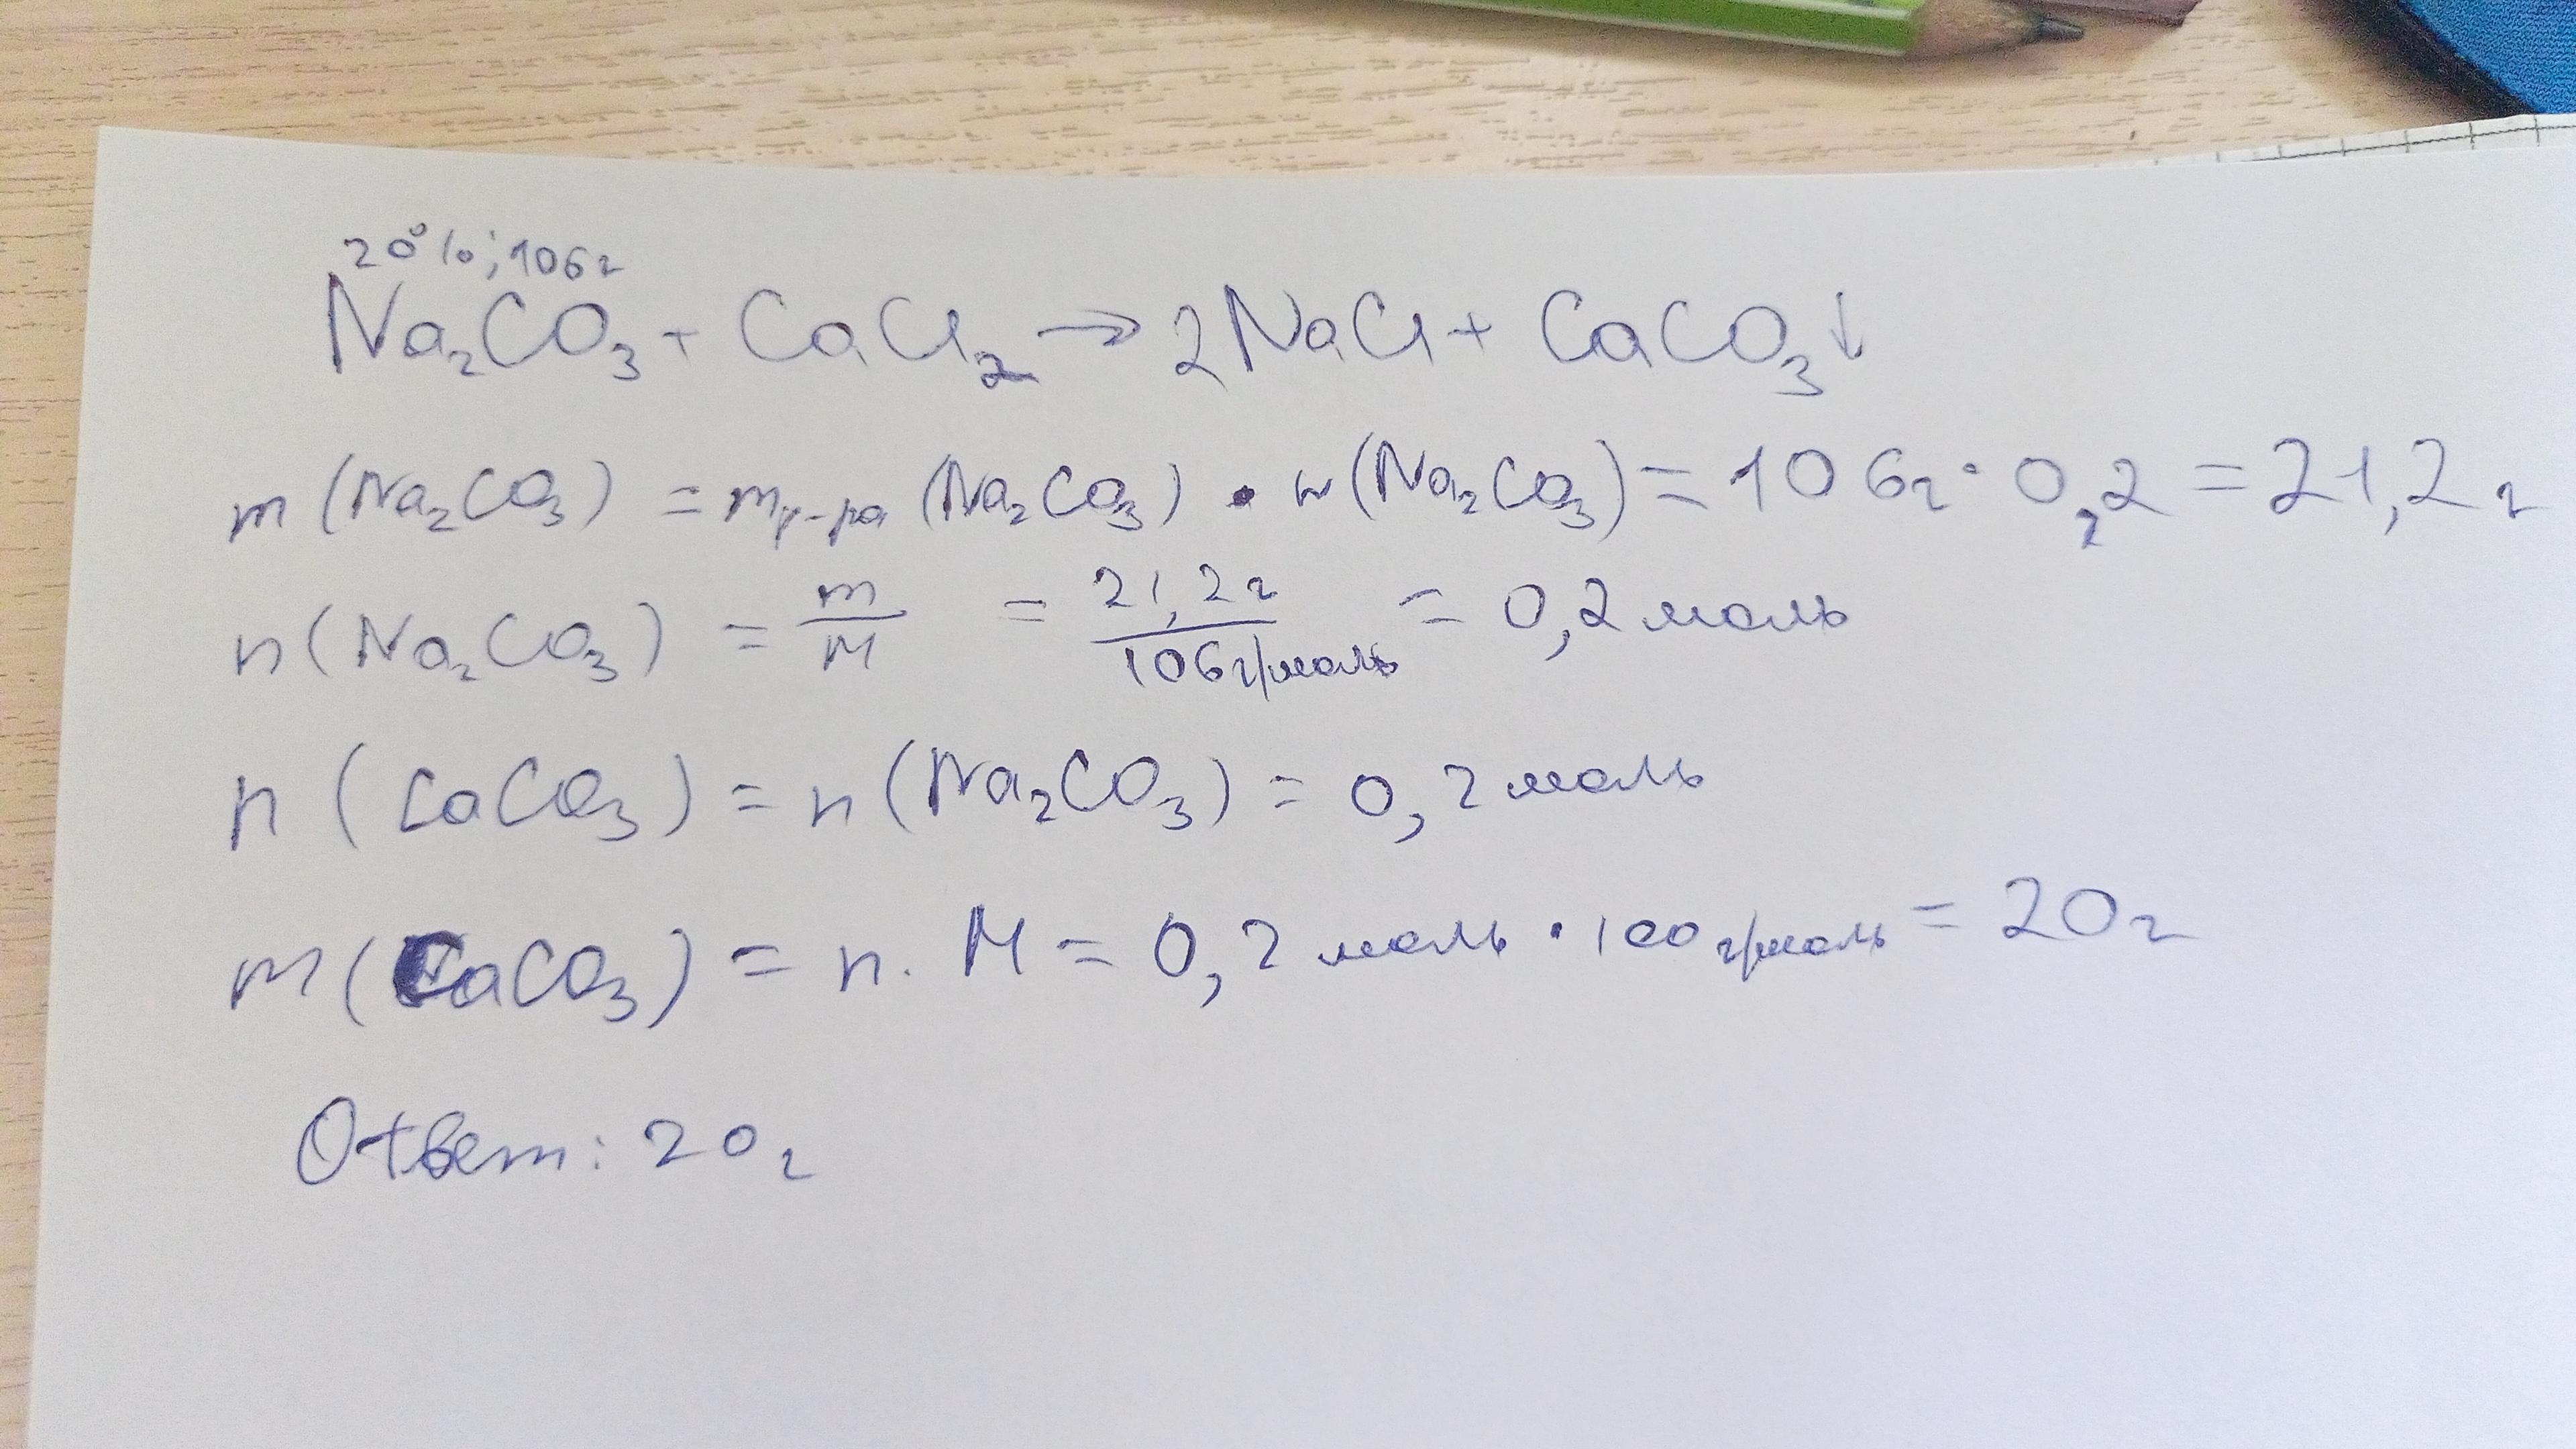 20%; 106г
Na₂CO₃ + CaCl₂ → 2NaCl + CaCO₃↓
m (Na₂CO₃) = mр-ра (Na₂CO₃) · w (Na₂CO₃) = 106г · 0,2 = 21,2 г
n (Na₂CO₃) = m/M = 21,2г/106г/моль = 0,2 моль
n (CaCO₃) = n (Na₂CO₃) = 0,2 моль
m (CaCO₃) = n · M = 0,2 моль · 100 г/моль = 20г
Ответ: 20г